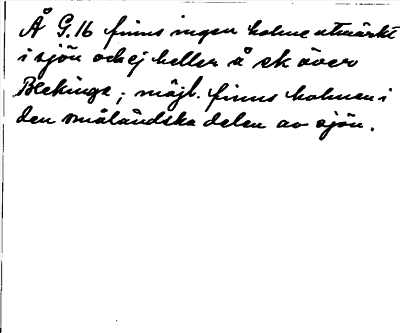 Å G.16 finns ingen holme utmärkt
i sjön och ej heller å ek över
Blekinge; möjl. finns holmen i
den småländska delen av sjön.